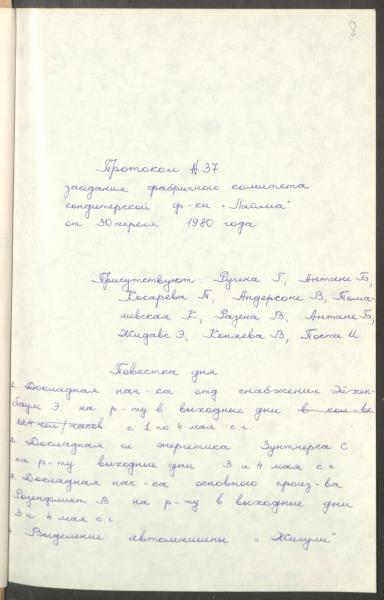 8
Протокол № 37
заседания фабричного комитета
кондитерской ф-ки "Лайма"
от 30 апреля 1980 года
Присутствуют Ругена Г, Антане Б,
Косарева П, Андерсоне В, Тома-
шевская К, Разена В, Антане Б,
Жидавс Э, Коняева В, Поста И
Повестка дня
1. Докладная нач-ка отд снабжение Эйхен-
баум Э. на р-ту в выходные дни в кол-ве
чел/часов с 1 по 4 мая с.г.
2. Докладная гл энергетика Зунтнерса С
на р-ту выходные дни 3 и 4 мая с.г
3. Докладная нач-са основного произ-ва
Розенфлинт В на р-ту в выходные дни
3 и 4 мая с.г.
4. Выделение автомашины "Жигули"